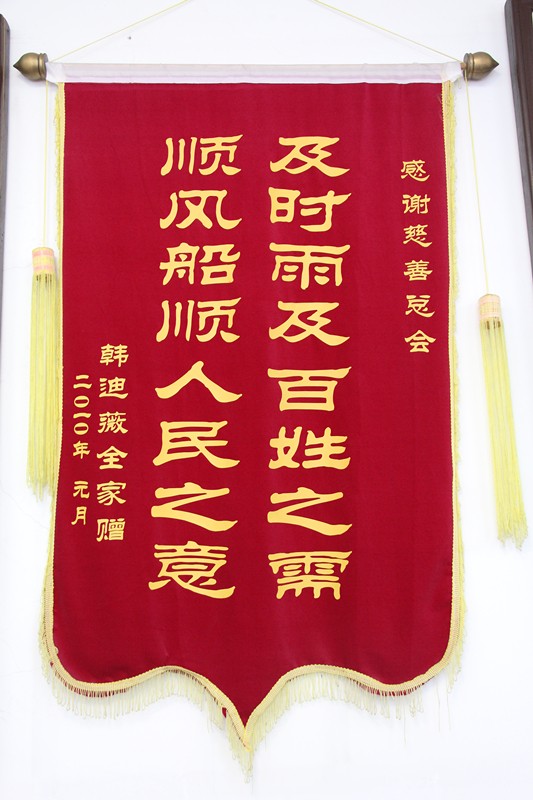 感谢慈善总会
及时雨及百姓之需
顺风船顺人民之意
韩迪薇全家赠
二〇一〇年 元月